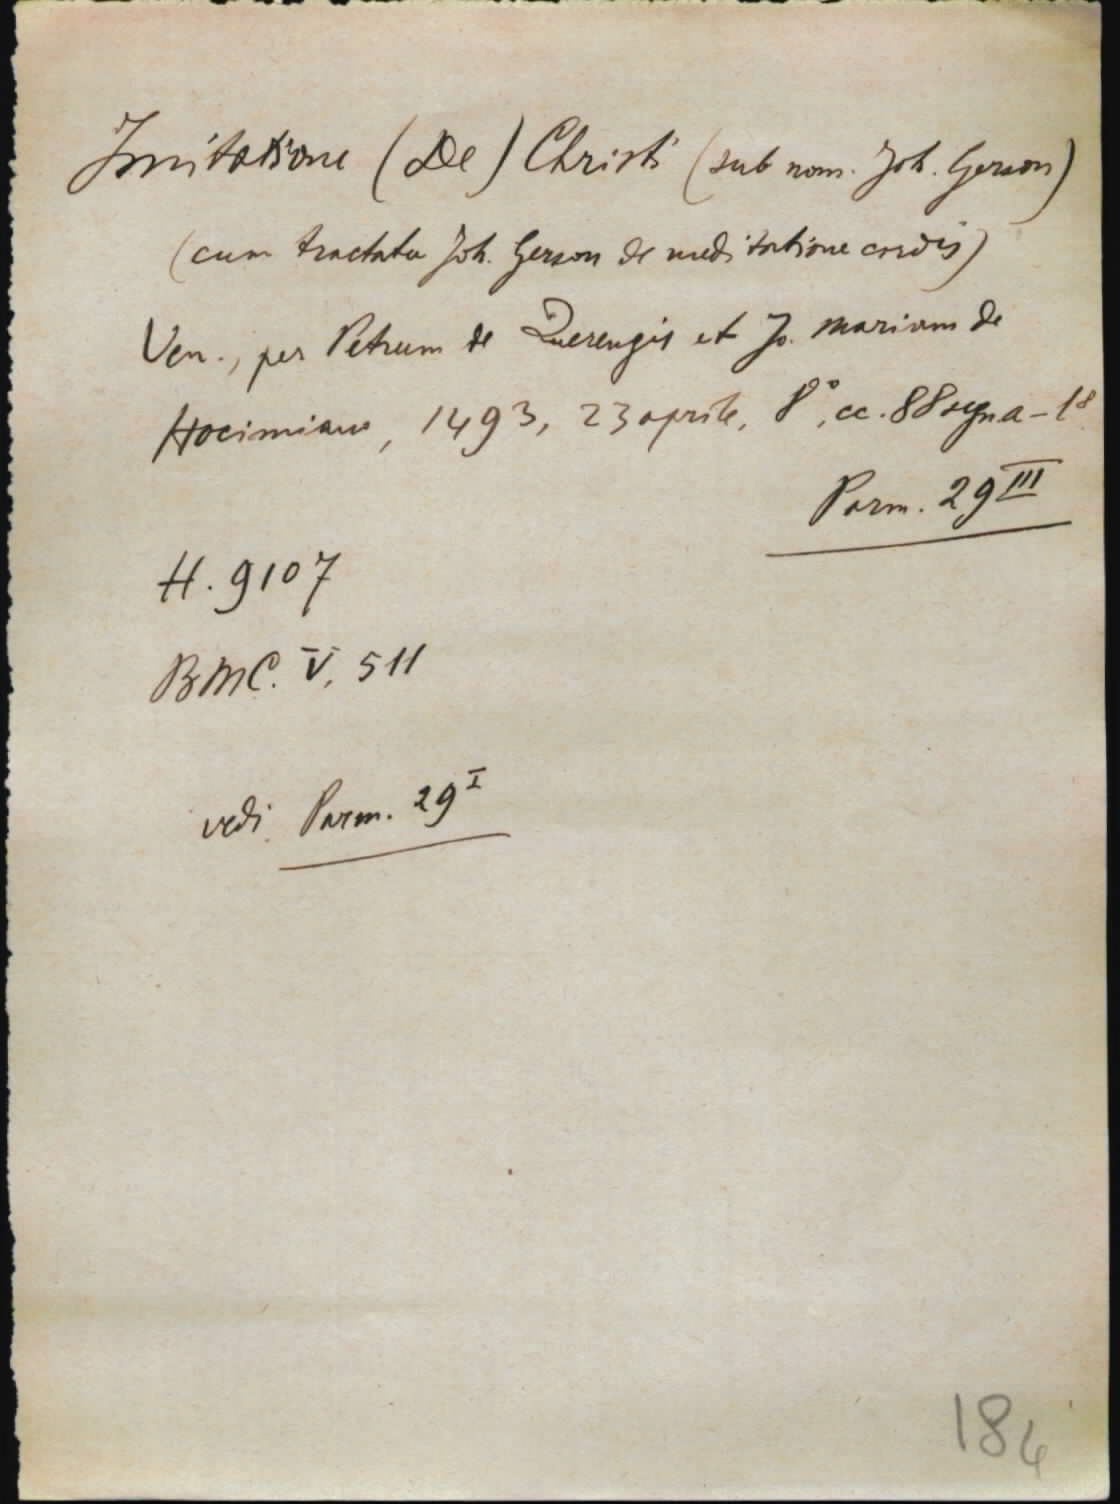 Imitatione (De) Christi (sub nom. Joh. Gerson)
(cum tractatu Joh. Gerson de meditatione cordis)
Ven., per Petrum de Querengis et Jo. Mariam de
Hocimiano, 1493, 23 aprile, 8°, cc. 88 segn. a-l⁸
Parm. 29 III
H. 9107
BMC. V, 511
vedi Parm. 29 I
184